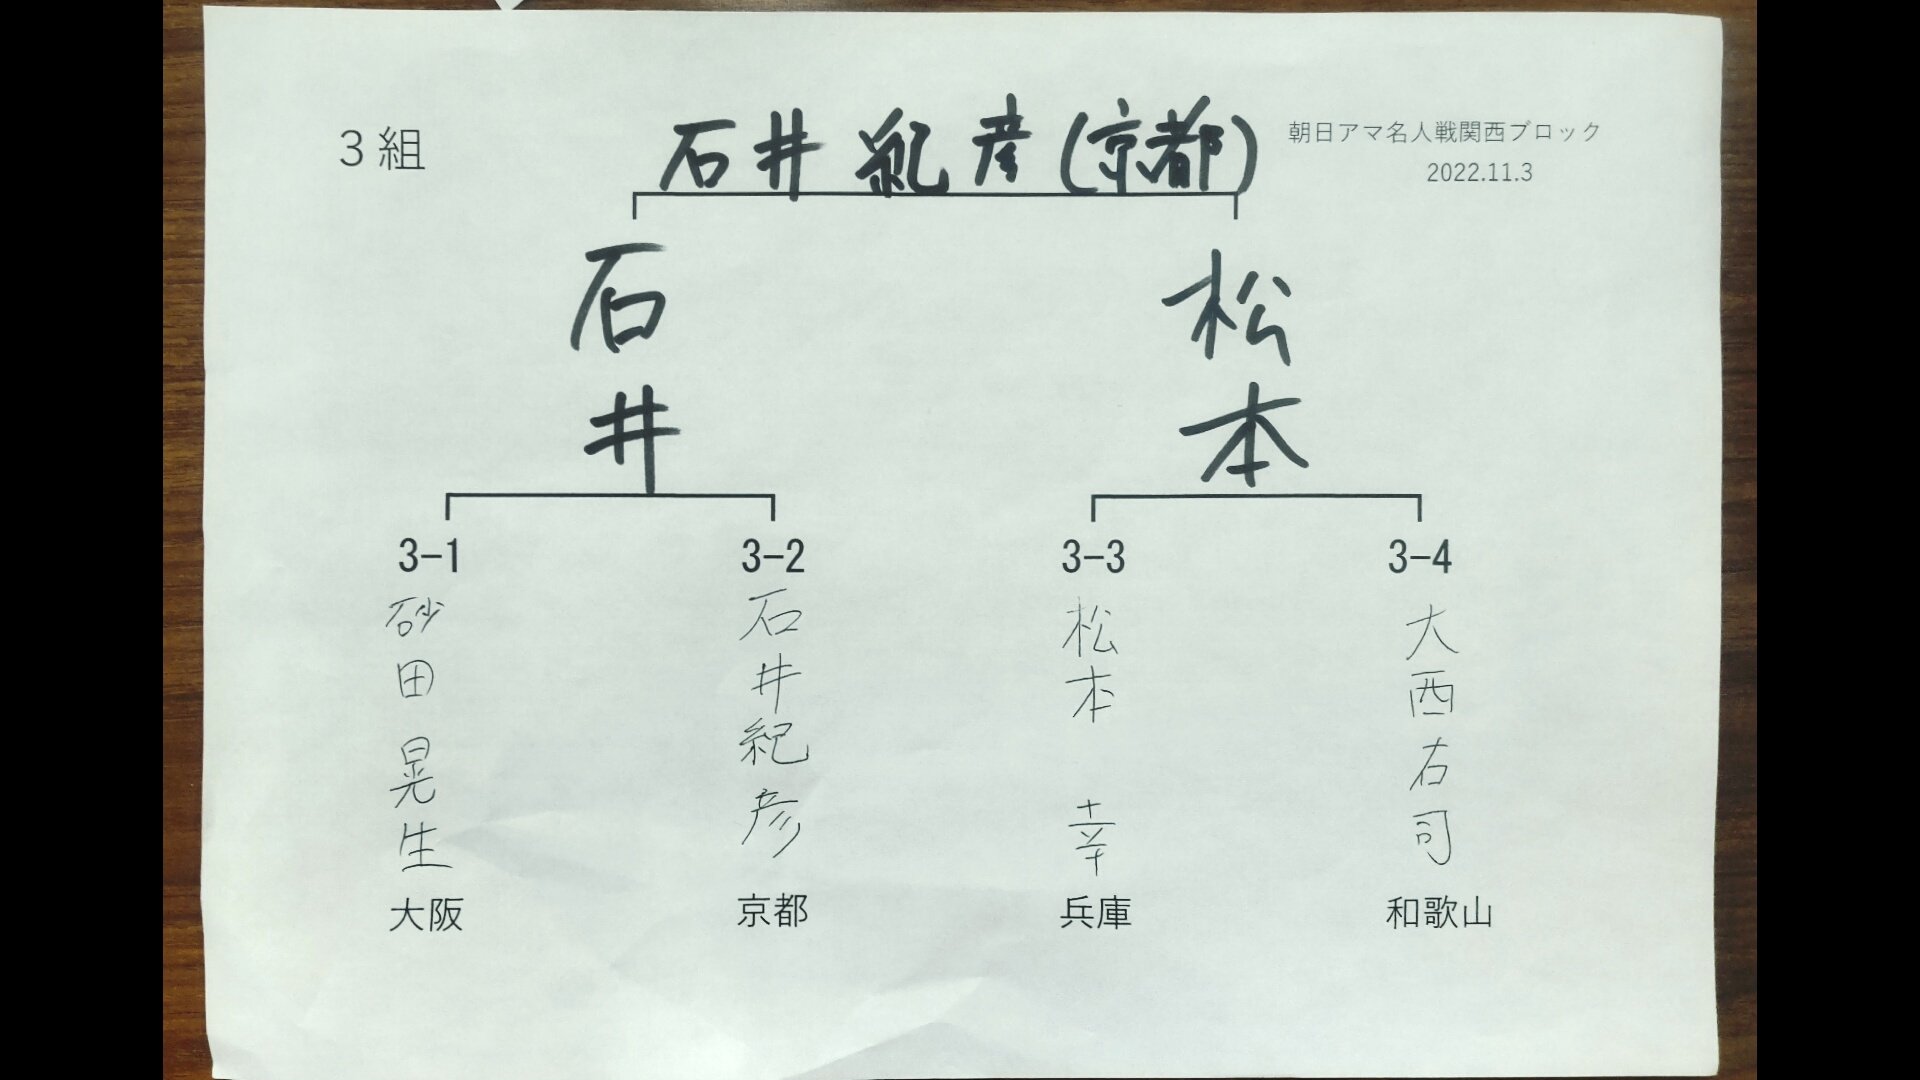 3組
石井紀彦(京都)
朝日アマ名人戦関西ブロック
2022.11.3
石井
松本
3-1
3-2
3-3
3-4
砂田晃生
石井紀彦
松本 幸
大西右司
大阪
京都
兵庫
和歌山